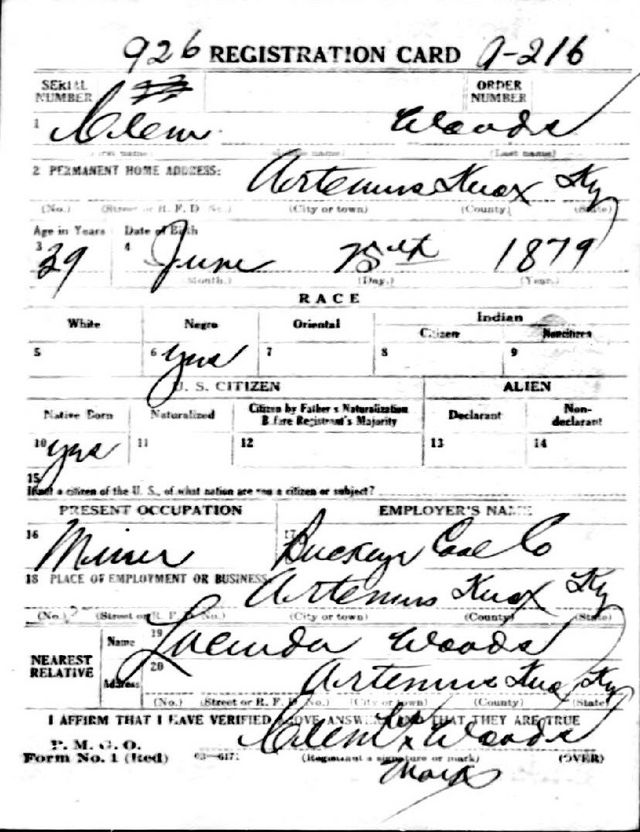 926 REGISTRATION CARD A-216
SERIAL NUMBER ORDER NUMBER
1 Clem Woods
(First name) (Middle name) (Last name)
2 PERMANENT HOME ADDRESS: Artemus Knox Ky
(No.) (Street or R. F. D. No.) (City or town) (County) (State)
Age in Years Date of Birth
3 39 4 June 25th 1879
(Month.) (Day.) (Year.)
RACE
White Negro Oriental Indian
Citizen Noncitizen
5 6 yes 7 8 9
U. S. CITIZEN ALIEN
Native Born Naturalized Citizen by Father's Naturalization Before Registrant's Majority Declarant Non-declarant
10 yes 11 12 13 14
15
If not a citizen of the U. S., of what nation are you a citizen or subject?
PRESENT OCCUPATION EMPLOYER'S NAME
16 Miner 17 Buckeye Coal Co
18 PLACE OF EMPLOYMENT OR BUSINESS: Artemus Knox Ky
(No.) (Street or R. F. D. No.) (City or town) (County) (State)
NEAREST RELATIVE Name 19 Lucinda Woods
Address 20 Artemus Knox Ky
(No.) (Street or R. F. D. No.) (City or town) (County) (State)
I AFFIRM THAT I HAVE VERIFIED ABOVE ANSWERS AND THAT THEY ARE TRUE
P. M. G. O.
Form No. 1 (Red) Clem X Woods
(Registrant's signature or mark) (OVER)
mark